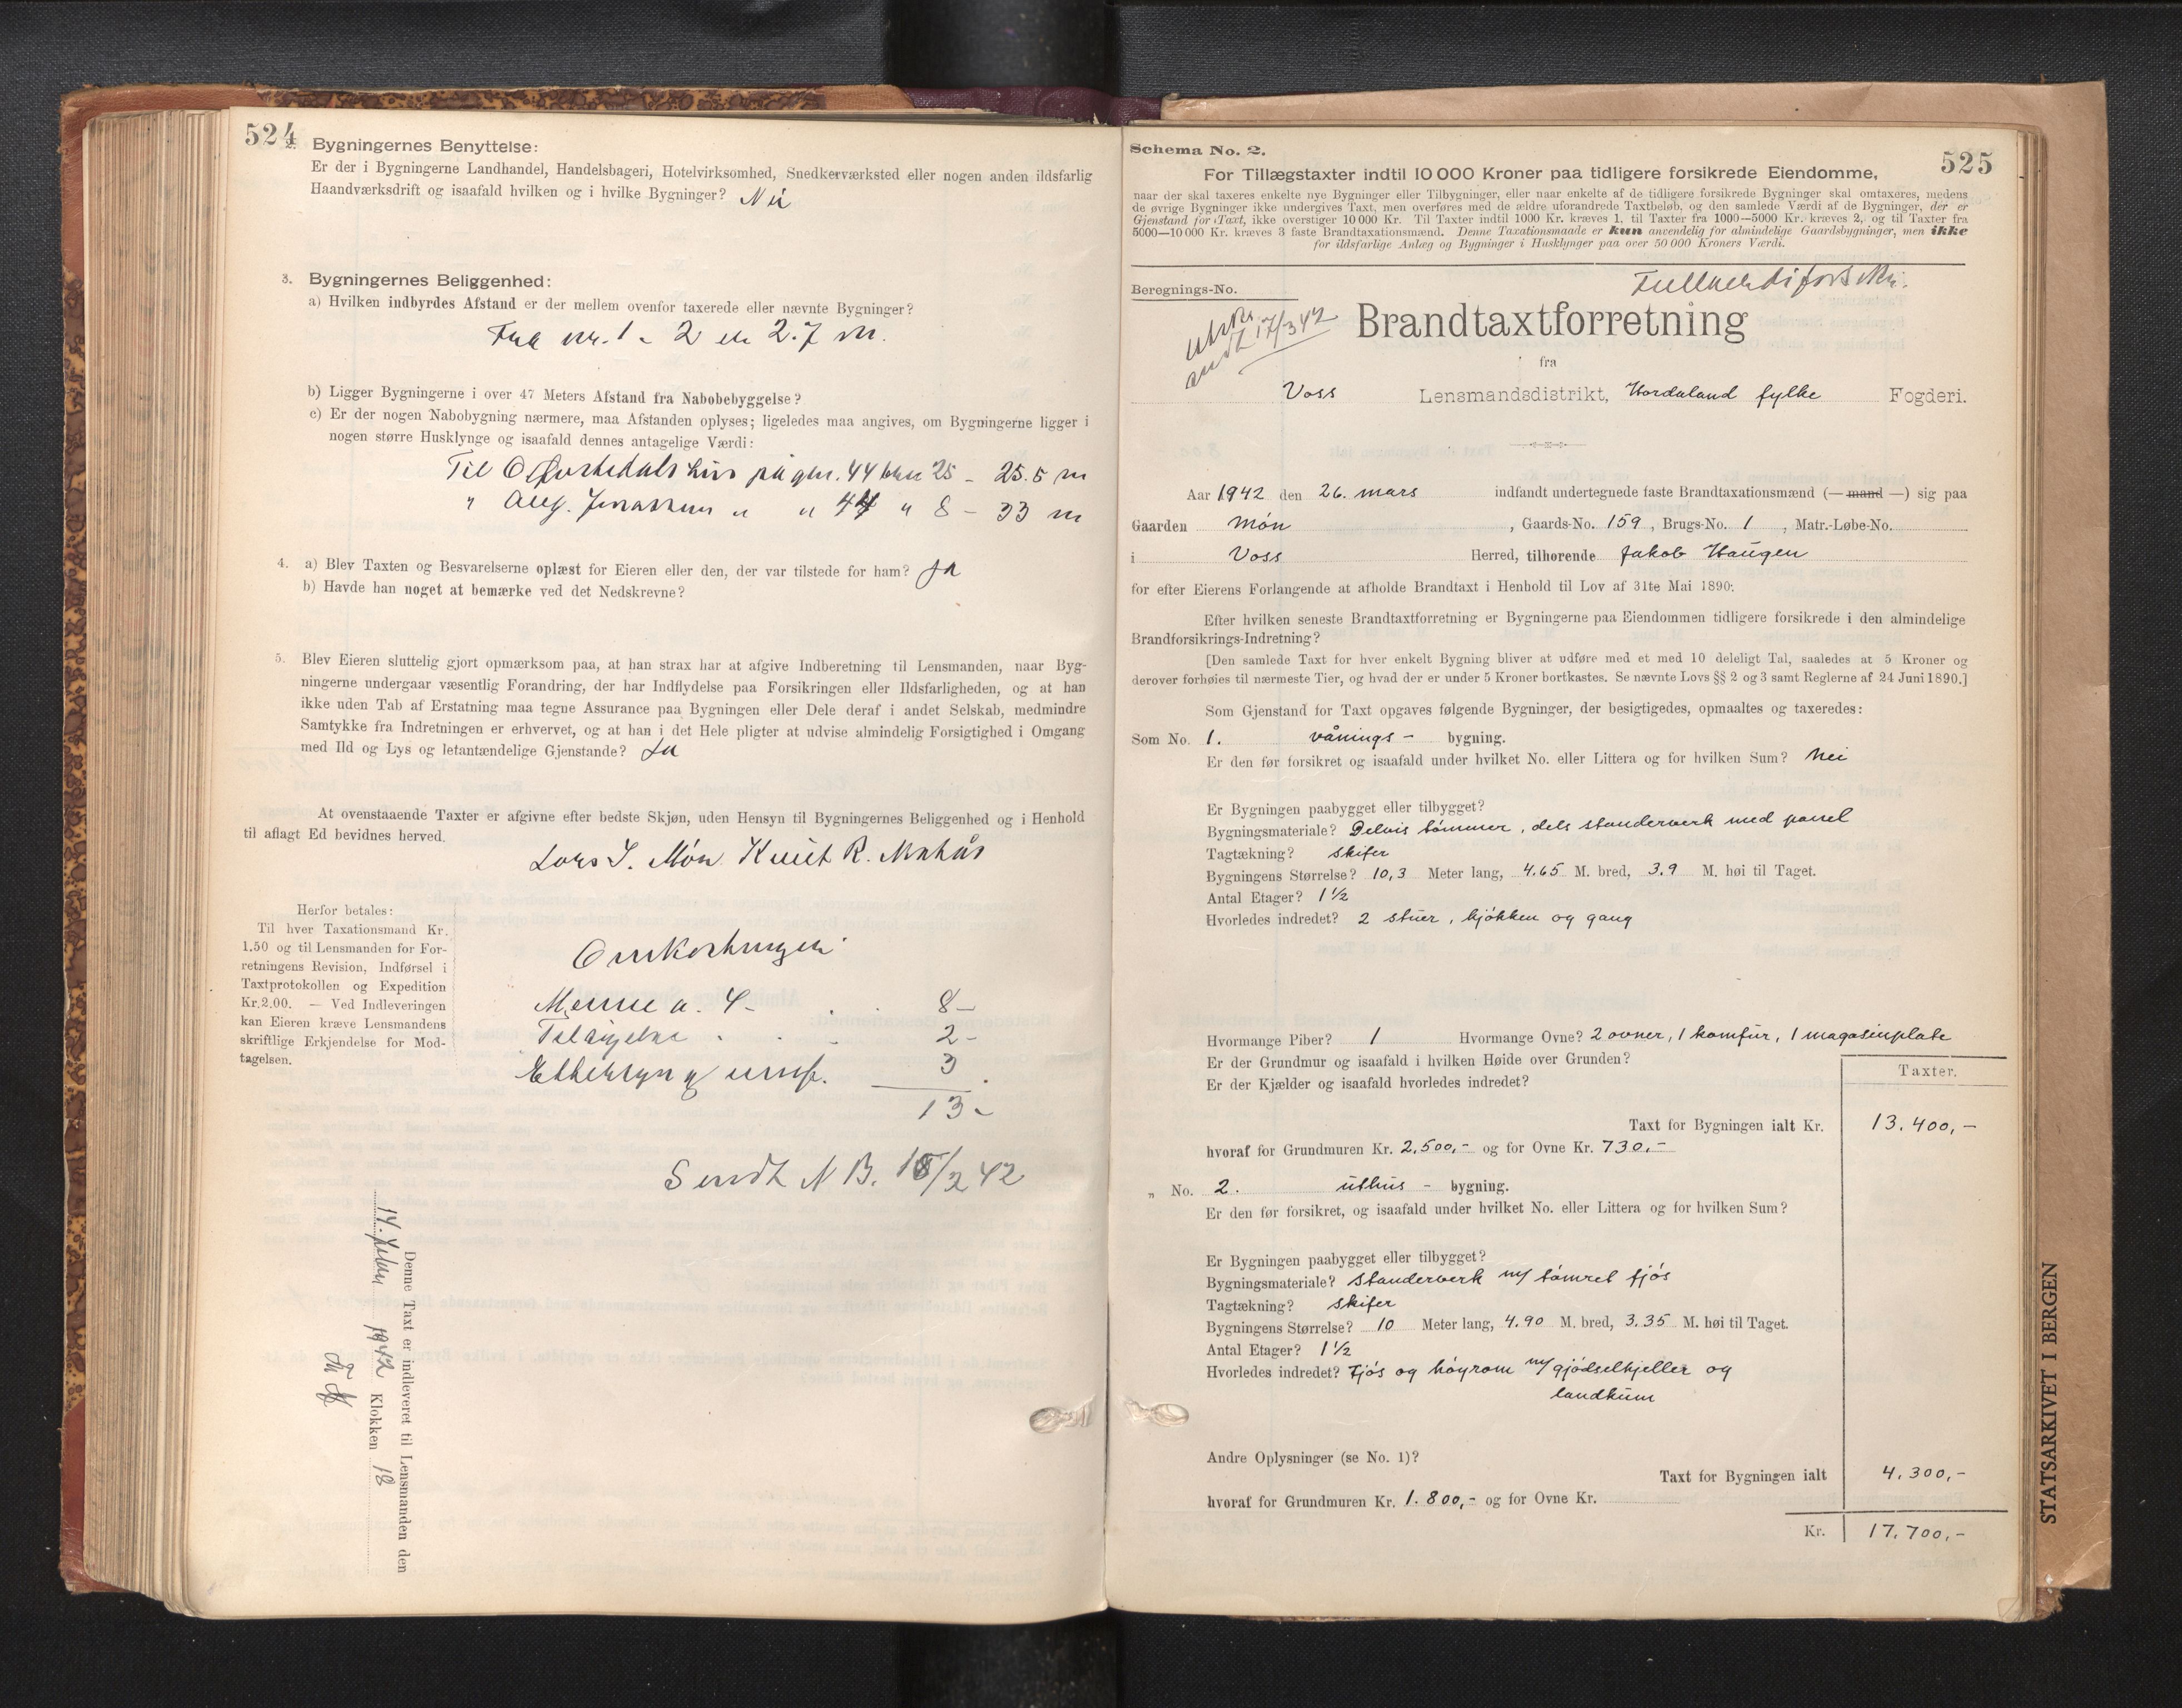 524
2. Bygningernes Benyttelse:
Er der i Bygningerne Landhandel, Handelsbageri, Hotelvirksomhed, Snedkerværksted eller nogen anden ildsfarlig
Haandværksdrift og isaafald hvilken og i hvilke Bygninger? Nei
3. Bygningernes Beliggenhed:
a) Hvilken indbyrdes Afstand er der mellem ovenfor taxerede eller nævnte Bygninger?
Fra nr. 1 - 2 er 2.7 m.
b) Ligger Bygningerne i over 47 Meters Afstand fra Nabobebyggelse?
c) Er der nogen Nabobygning nærmere, maa Afstanden oplyses; ligeledes maa angives, om Bygningerne ligger i
nogen større Husklynge og isaafald dennes antagelige Værdi:
Til hus på gnr. 44 bnr 25 - 25.5 m
" " " 44 " 8 - 33 m
4. a) Blev Taxten og Besvarelserne oplæst for Eieren eller den, der var tilstede for ham? Ja
b) Havde han noget at bemærke ved det Nedskrevne?
5. Blev Eieren sluttelig gjort opmærksom paa, at han strax har at afgive Indberetning til Lensmanden, naar Byg-
ningerne undergaar væsentlig Forandring, der har Indflydelse paa Forsikringen eller Ildsfarligheden, og at han
ikke uden Tab af Erstatning maa tegne Assurance paa Bygningen eller Dele deraf i andet Selskab, medmindre
Samtykke fra Indretningen er erhvervet, og at han i det Hele pligter at udvise almindelig Forsigtighed i Omgang
med Ild og Lys og letantændelige Gjenstande? Ja
At ovenstaaende Taxter er afgivne efter bedste Skjøn, uden Hensyn til Bygningernes Beliggenhed og i Henhold
til aflagt Ed bevidnes herved.
Lars I. Møn Knut R.
Herfor betales:
Til hver Taxationsmand Kr.
1.50 og til Lensmanden for For-
retningens Revision, Indførsel i
Taxtprotokollen og Expedition
Kr.2.00. — Ved Indleveringen
kan Eieren kræve Lensmandens
skriftlige Erkjendelse for Mod-
tagelsen.
Omkostninger:
Menne a. 4 - 8 -
2 -
Ettersyn 3
13 -
Sendt N B. 42
Denne Taxt er indleveret til Lensmanden den
14. febr 1942 Klokken 18
Schema No. 2.
525
For Tillægstaxter indtil 10 000 Kroner paa tidligere forsikrede Eiendomme,
naar der skal taxeres enkelte nye Bygninger eller Tilbygninger, eller naar enkelte af de tidligere forsikrede Bygninger skal omtaxeres, medens
de øvrige Bygninger ikke undergives Taxt, men overføres med de ældre uforandrede Taxtbeløb, og den samlede Værdi af de Bygninger, der er
Gjenstand for Taxt, ikke overstiger 10 000 Kr. Til Taxter indtil 1000 Kr. kræves 1, til Taxter fra 1000—5000 Kr. kræves 2, og til Taxter fra
5000—10 000 Kr. kræves 3 faste Brandtaxationsmænd. Denne Taxationsmaade er kun anvendelig for almindelige Gaardsbygninger, men ikke
for ildsfarlige Anlæg og Bygninger i Husklynger paa over 50 000 Kroners Værdi.
Fullverdiforsikr.
Beregnings-No.
sendt 17/3 42
Brandtaxtforretning
fra
Voss Lensmandsdistrikt, Hordaland fylke Fogderi.
Aar 1942 den 26. mars indfandt undertegnede faste Brandtaxationsmænd (— mand —) sig paa
Gaarden Møn, Gaards-No. 159, Brugs-No. 1, Matr.-Løbe-No.
i Voss Herred, tilhørende Jakob Haugen
for efter Eierens Forlangende at afholde Brandtaxt i Henhold til Lov af 31te Mai 1890:
Efter hvilken seneste Brandtaxtforretning er Bygningerne paa Eiendommen tidligere forsikrede i den almindelige
Brandforsikrings-Indretning?
[Den samlede Taxt for hver enkelt Bygning bliver at udføre med et med 10 deleligt Tal, saaledes at 5 Kroner og
derover forhøies til nærmeste Tier, og hvad der er under 5 Kroner bortkastes. Se nævnte Lovs §§ 2 og 3 samt Reglerne af 24 Juni 1890.]
Som Gjenstand for Taxt opgaves følgende Bygninger, der besigtigedes, opmaaltes og taxeredes:
Som No. 1. vånings - bygning.
Er den før forsikret og isaafald under hvilket No. eller Littera og for hvilken Sum? Nei
Er Bygningen paabygget eller tilbygget?
Bygningsmateriale? Delvis tømmer, dels standerverk med panel
Tagtækning? skifer
Bygningens Størrelse? 10,3 Meter lang, 4.65 M. bred, 3.9 M. høi til Taget.
Antal Etager? 1½
Hvorledes indredet? 2 stuer, kjøkken og gang
Hvormange Piber? 1 Hvormange Ovne? 2 ovner, 1 komfur, 1 magasinplate
Er der Grundmur og isaafald i hvilken Høide over Grunden?
Er der Kjælder og isaafald hvorledes indredet?
Taxter.
Taxt for Bygningen ialt Kr. 13.400,-
hvoraf for Grundmuren Kr. 2,500,- og for Ovne Kr. 730,-
„ No. 2. uthus - bygning.
Er den før forsikret, og isaafald under hvilket No. eller Littera og for hvilken Sum?
Er Bygningen paabygget eller tilbygget?
Bygningsmateriale? Standerverk m/ tømret fjøs
Tagtækning? skifer
Bygningens Størrelse? 10 Meter lang, 4.90 M. bred, 3.35 M. høi til Taget.
Antal Etager? 1½
Hvorledes indredet? Fjøs og høyrom m/ gjødselkjeller og
landkum
Andre Oplysninger (se No. 1)?
Taxt for Bygningen ialt 4.300,-
hvoraf for Grundmuren Kr. 1.800,- og for Ovne Kr.
Kr. 17.700,-
STATSARKIVET I BERGEN